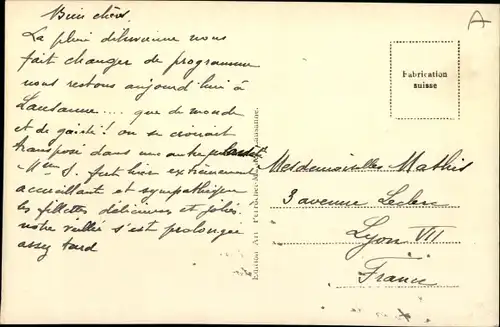 Bien chers.
La pluie diluvienne nous
fait changer de programme
nous restons aujourd'hui à
Lausanne.... que de monde
et de gaieté! on se croirait
transposé dans un autre
Mme J. fut hier extrêmement
accueillant et sympathique
les fillettes délicieuses et jolies.
notre veillée s'est prolongée
assez tard
A
Fabrication
suisse
Edition Art Perrochet Lausanne.
Mesdemoiselles Mathis
3 avenue Leclerc
Lyon VII
France